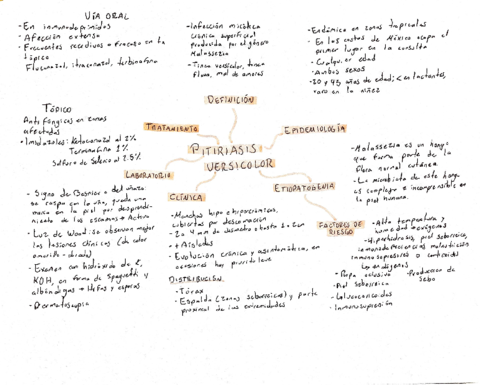 VÍA ORAL
- En inmunodeprimidos
- Afección extensa
- Frecuentes recidivas o fracaso en tx
tópico
Fluconazol, itraconazol, terbinafina
- Infección micótica
crónica superficial
producida por el género
Malassezia
- Tinea versicolor, tinea
flava, mal de amores
- Endémica en zonas tropicales
- En las costas de México ocupa el
primer lugar en la consulta
- Cualquier edad
- Ambos sexos
- 20 y 45 años de edad; < en lactantes,
raro en la niñez
TÓPICO
Antifúngicos en zonas
afectadas
- Imidazoles: Ketoconazol al 2%
Terbinafina 1%
Sulfuro de Selenio al 2.5%
DEFINICIÓN
TRATAMIENTO
EPIDEMIOLOGÍA
PITIRIASIS
VERSICOLOR
LABORATORIO
CLÍNICA
ETIOPATOGENIA
- Malassezia es un hongo
que forma parte de la
flora normal cutánea.
- La microbiota de este hongo
es compleja e incomprensible en
la piel humana.
- Signo de Besnier o del uñazo
se raspa con la uña, queda una
marca en la piel por desprendi-
miento de las escamas + Activa
- Luz de Wood: se observan mejor
las lesiones clínicas (de color
amarillo - dorado)
- Examen con hidróxido de K,
KOH, en forma de Spaguetti y
albóndigas → Hifas y esporas
- Dermatoscopia
- Manchas hipo e hipercrómicas,
cubiertas por descamación
- 2 a 4 mm de diámetro hasta 1 o 2 cm
+ Aisladas
- Evolución crónica y asintomática, en
ocasiones hay prurido leve
DISTRIBUCIÓN
- Tórax
- Espalda (zonas seborreicas) y parte
proximal de las extremidades
FACTORES DE
RIESGO
- Alta temperatura y
humedad
exógenos
- Hiperhidrosis, piel seborreica,
inmunodeficiencias
endógenos
- Ropa oclusiva
- Producción de
sebo
- Piel seborreica
- Inmunosupresión